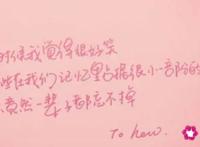 时候我觉得很好笑
些在我们记忆里占据很小一部分的
竟然一辈子都忘不掉
To